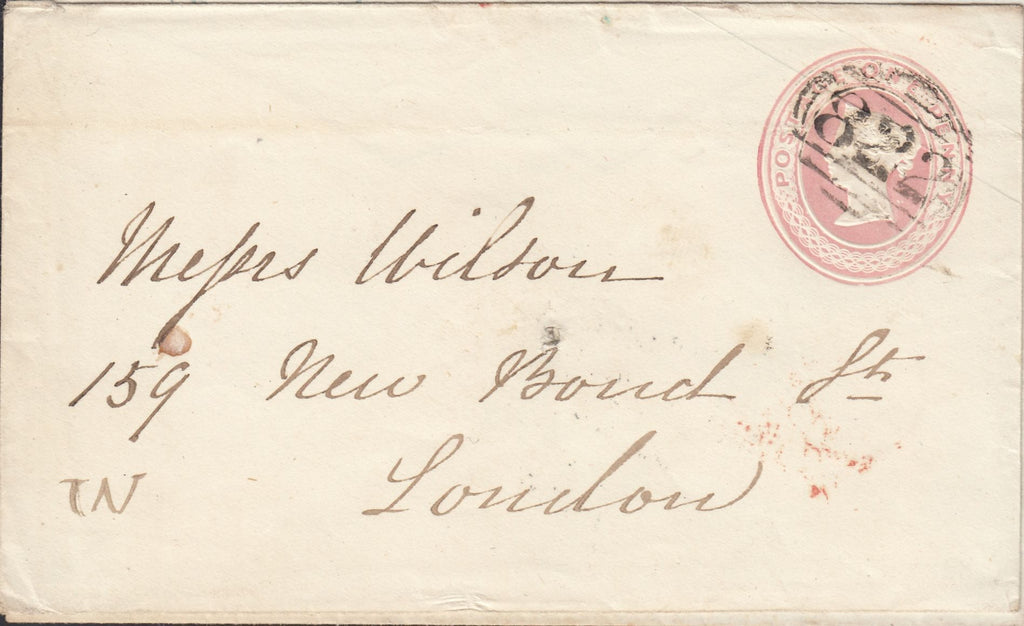 POSTAGE ONE PENNY
Messrs Wilson
159 New Bond St
London